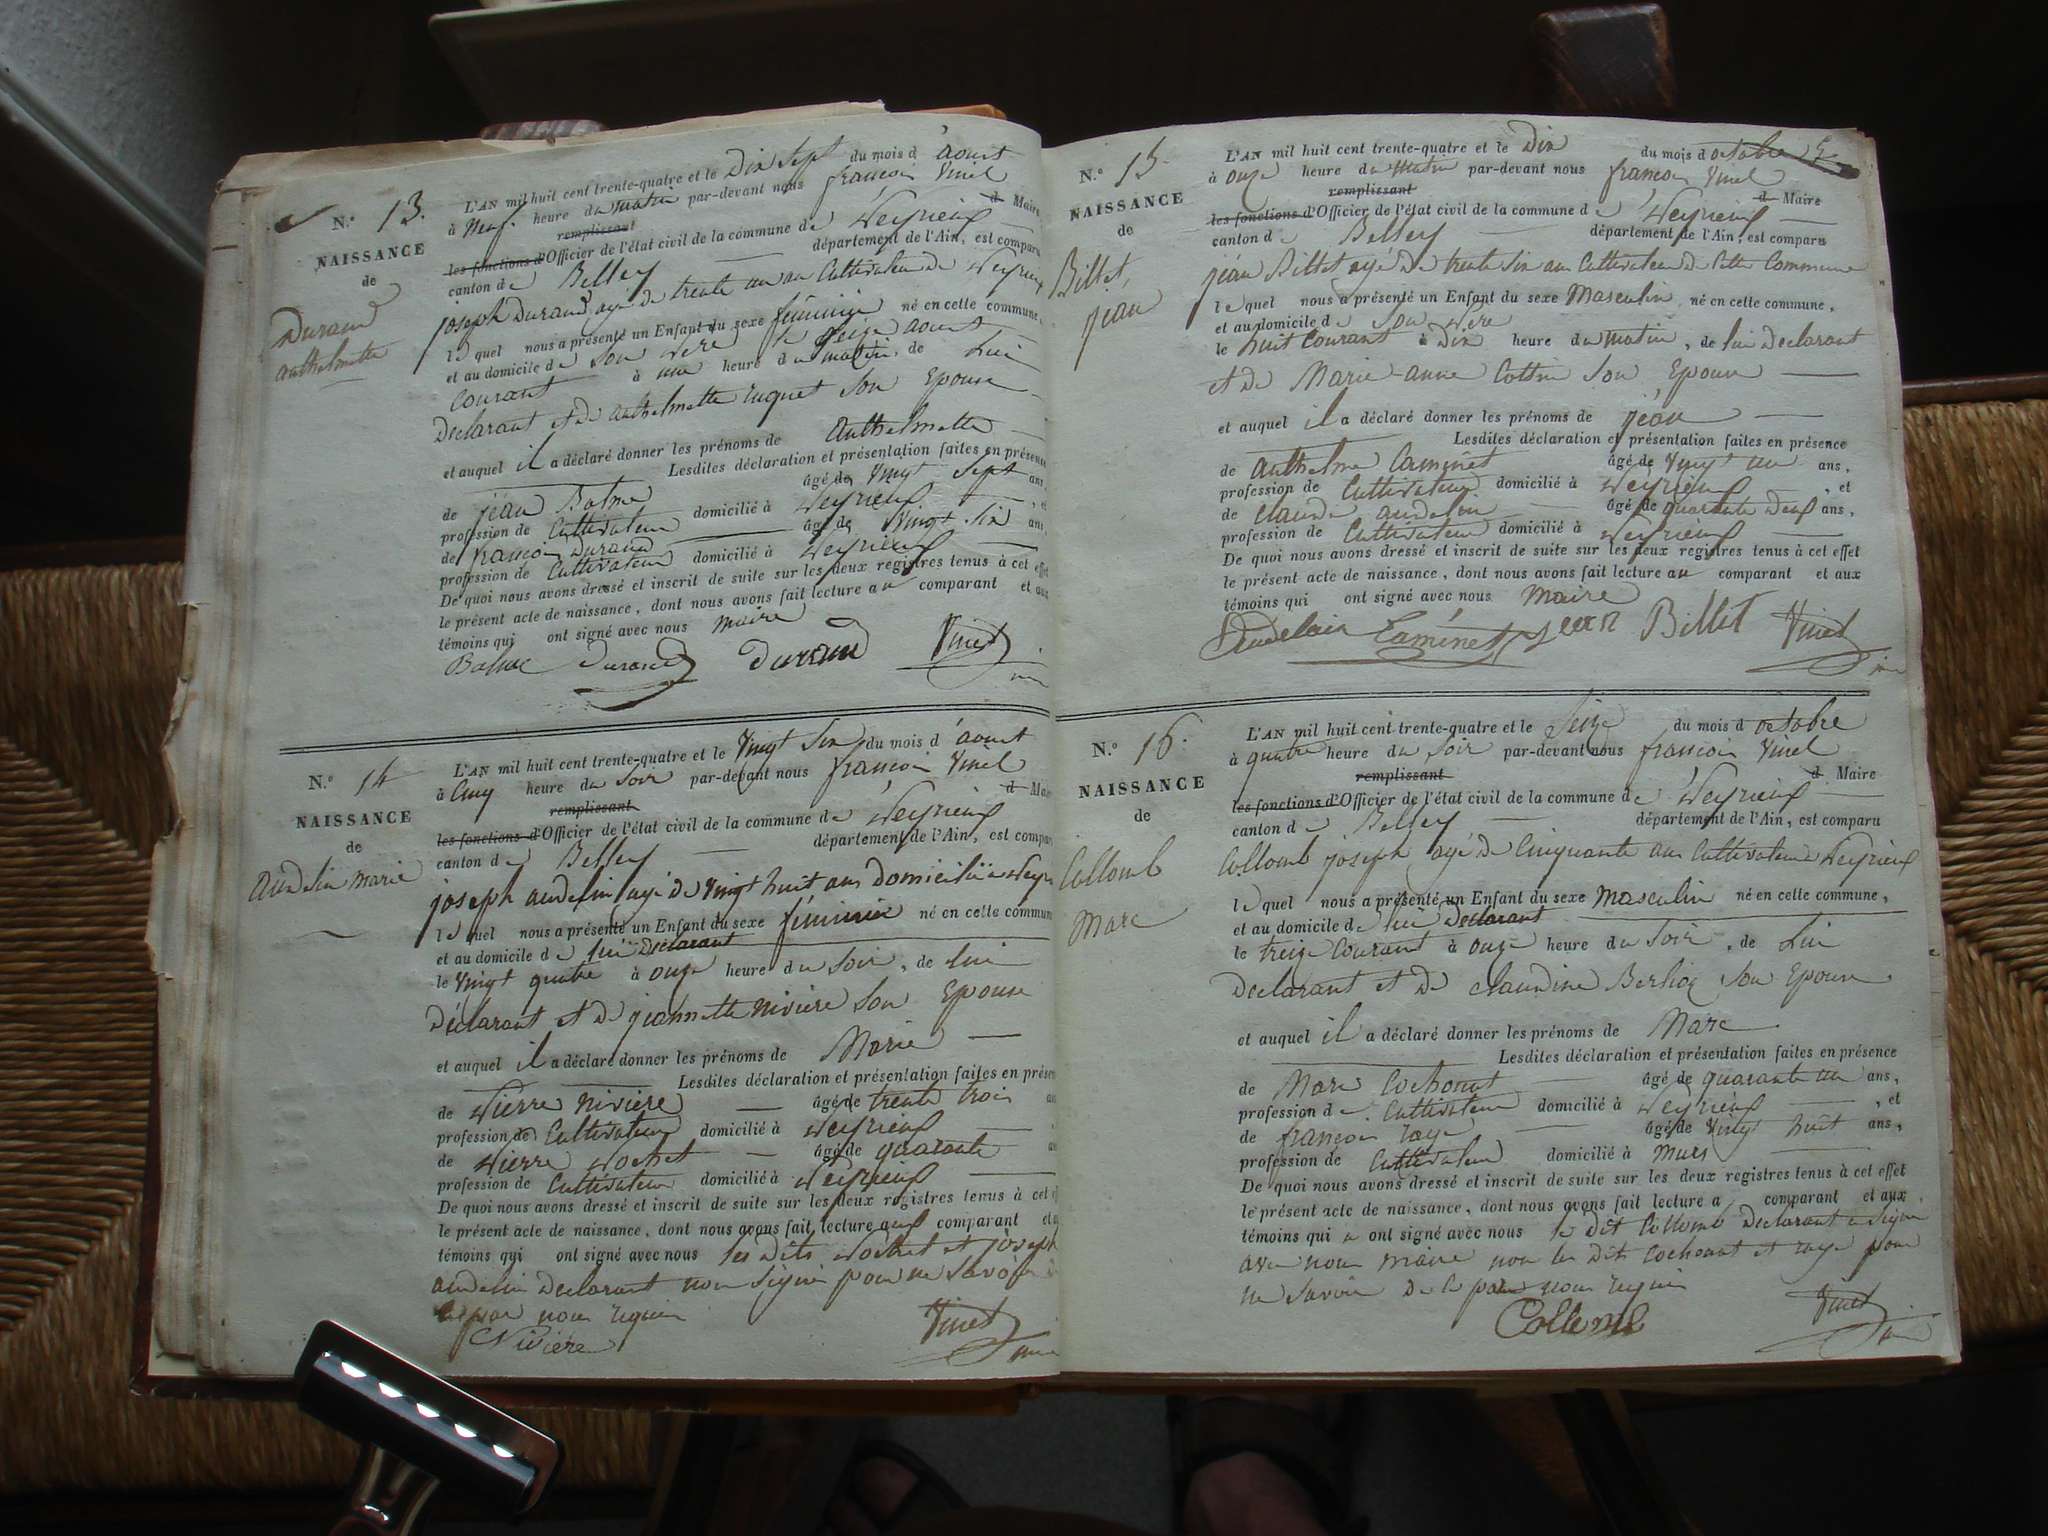 N.o 13.
NAISSANCE
de
Durand
anthelmette
L'AN mil huit cent trente-quatre et le Dix sept du mois d'août
à neuf heure du matin par-devant nous françois Vinel
remplissant d Maire
les fonctions d'Officier de l'état civil de la commune de Peyrieux
canton de Belley département de l'Ain, est comparu
joseph Durand agé de trente un an Cultivateur de Peyrieux
lequel nous a présenté un Enfant du sexe féminin né en cette commune,
et au domicile de Son père le seize août
Courant à une heure du matin, de Lui
Declarant et de anthelmette ruquet Son Epouse
et auquel il a déclaré donner les prénoms de anthelmette
Lesdites déclaration et présentation faites en présence
de jean Balme âgé de Vingt Sept ans,
profession de Cultivateur domicilié à Peyrieux, et
de françois Durand âgé de Vingt Six ans,
profession de Cultivateur domicilié à Peyrieux
De quoi nous avons dressé et inscrit de suite sur les deux registres tenus à cet effet
le présent acte de naissance, dont nous avons fait lecture au comparant et aux
témoins qui ont signé avec nous maire
Balme Durand Durand Vinet
N.o 14
NAISSANCE
de
Audelin marie
L'AN mil huit cent trente-quatre et le Vingt Six du mois d'août
à Cinq heure du Soir par-devant nous françois Vinel
remplissant d Maire
les fonctions d'Officier de l'état civil de la commune de Peyrieux
canton de Belley département de l'Ain, est comparu
joseph audelin agé de Vingt huit ans Domicilié à Peyrieux
lequel nous a présenté un Enfant du sexe féminin né en cette commune
et au domicile de lui Déclarant
le Vingt quatre à onze heure du Soir, de Lui
Déclarant et de jeannette nivière Son Epouse
et auquel il a déclaré donner les prénoms de Marie
Lesdites déclaration et présentation faites en présence
de Pierre nivière âgé de trente trois
profession de Cultivateur domicilié à Peyrieux
de Pierre Pochet âgé de quarante
profession de Cultivateur domicilié à Peyrieux
De quoi nous avons dressé et inscrit de suite sur les deux registres tenus à cet
le présent acte de naissance, dont nous avons fait lecture aux comparant et
témoins qui ont signé avec nous les Dits Pochet et joseph
audelin Declarant non Signé pour ne Savoir
de par nous requis
Nivière Vinet
N.o 15
NAISSANCE
de
Billet,
jean
L'AN mil huit cent trente-quatre et le Dix du mois d octobre
à onze heure du Matin par-devant nous françois Vinel
remplissant d Maire
les fonctions d'Officier de l'état civil de la commune de Peyrieux
canton de Belley département de l'Ain, est comparu
jean Billet agé de trente Six ans Cultivateur de Cette Commune
lequel nous a présenté un Enfant du sexe Masculin, né en cette commune,
et au domicile de Son père
le huit Courant à Dix heure du matin, de lui Declarant
et de Marie-anne Cottin Son Epouse
et auquel il a déclaré donner les prénoms de jean
Lesdites déclaration et présentation faites en présence
de anthelme Caminet âgé de Vingt un ans,
profession de Cultivateur domicilié à Peyrieux, et
de Claude audelin âgé de quarante neuf ans,
profession de Cultivateur domicilié à Peyrieux
De quoi nous avons dressé et inscrit de suite sur les deux registres tenus à cet effet
le présent acte de naissance, dont nous avons fait lecture au comparant et aux
témoins qui ont signé avec nous maire
Audelain Caminet Jean Billet Vinet
N.o 16.
NAISSANCE
de
Collomb
Marc
L'AN mil huit cent trente-quatre et le Seize du mois d octobre
à quatre heure du Soir par-devant nous françois Vinel
remplissant d Maire
les fonctions d'Officier de l'état civil de la commune de Peyrieux
canton de Belley département de l'Ain, est comparu
Collomb joseph agé de Cinquante ans Cultivateur à Peyrieux
lequel nous a présenté un Enfant du sexe Masculin né en cette commune,
et au domicile de lui Declarant
le treize Courant à onze heure du Soir, de Lui
Declarant et de claudine Berlioz Son Epouse
et auquel il a déclaré donner les prénoms de Marc
Lesdites déclaration et présentation faites en présence
de Marc Cochonat âgé de quarante un ans,
profession de Cultivateur domicilié à Peyrieux, et
de françois raye âgé de Vingt huit ans,
profession de Cultivateur domicilié à Murs
De quoi nous avons dressé et inscrit de suite sur les deux registres tenus à cet effet
le présent acte de naissance, dont nous avons fait lecture a comparant et aux
témoins qui ont signé avec nous le dit Collomb Declarant a Signé
avec nous maire non les Dits Cochonat et raye pour
ne Savoir De le par nous requis
Collomb Vinet